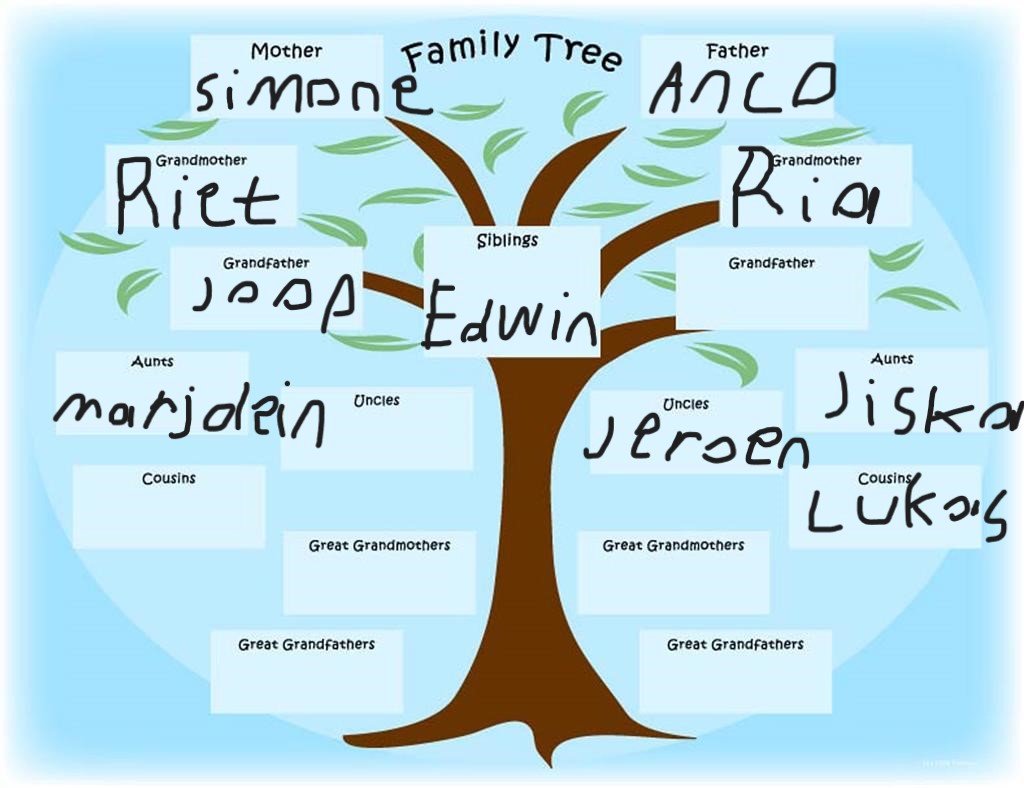 Family Tree
Mother
simone
Father
Anco
Grandmother
Riet
Grandmother
Ria
Siblings
Edwin
Grandfather
Joop
Grandfather
Aunts
marjolein
Uncles
Uncles
Jeroen
Aunts
Jiska
Cousins
Cousins
Lukas
Great Grandmothers
Great Grandmothers
Great Grandfathers
Great Grandfathers